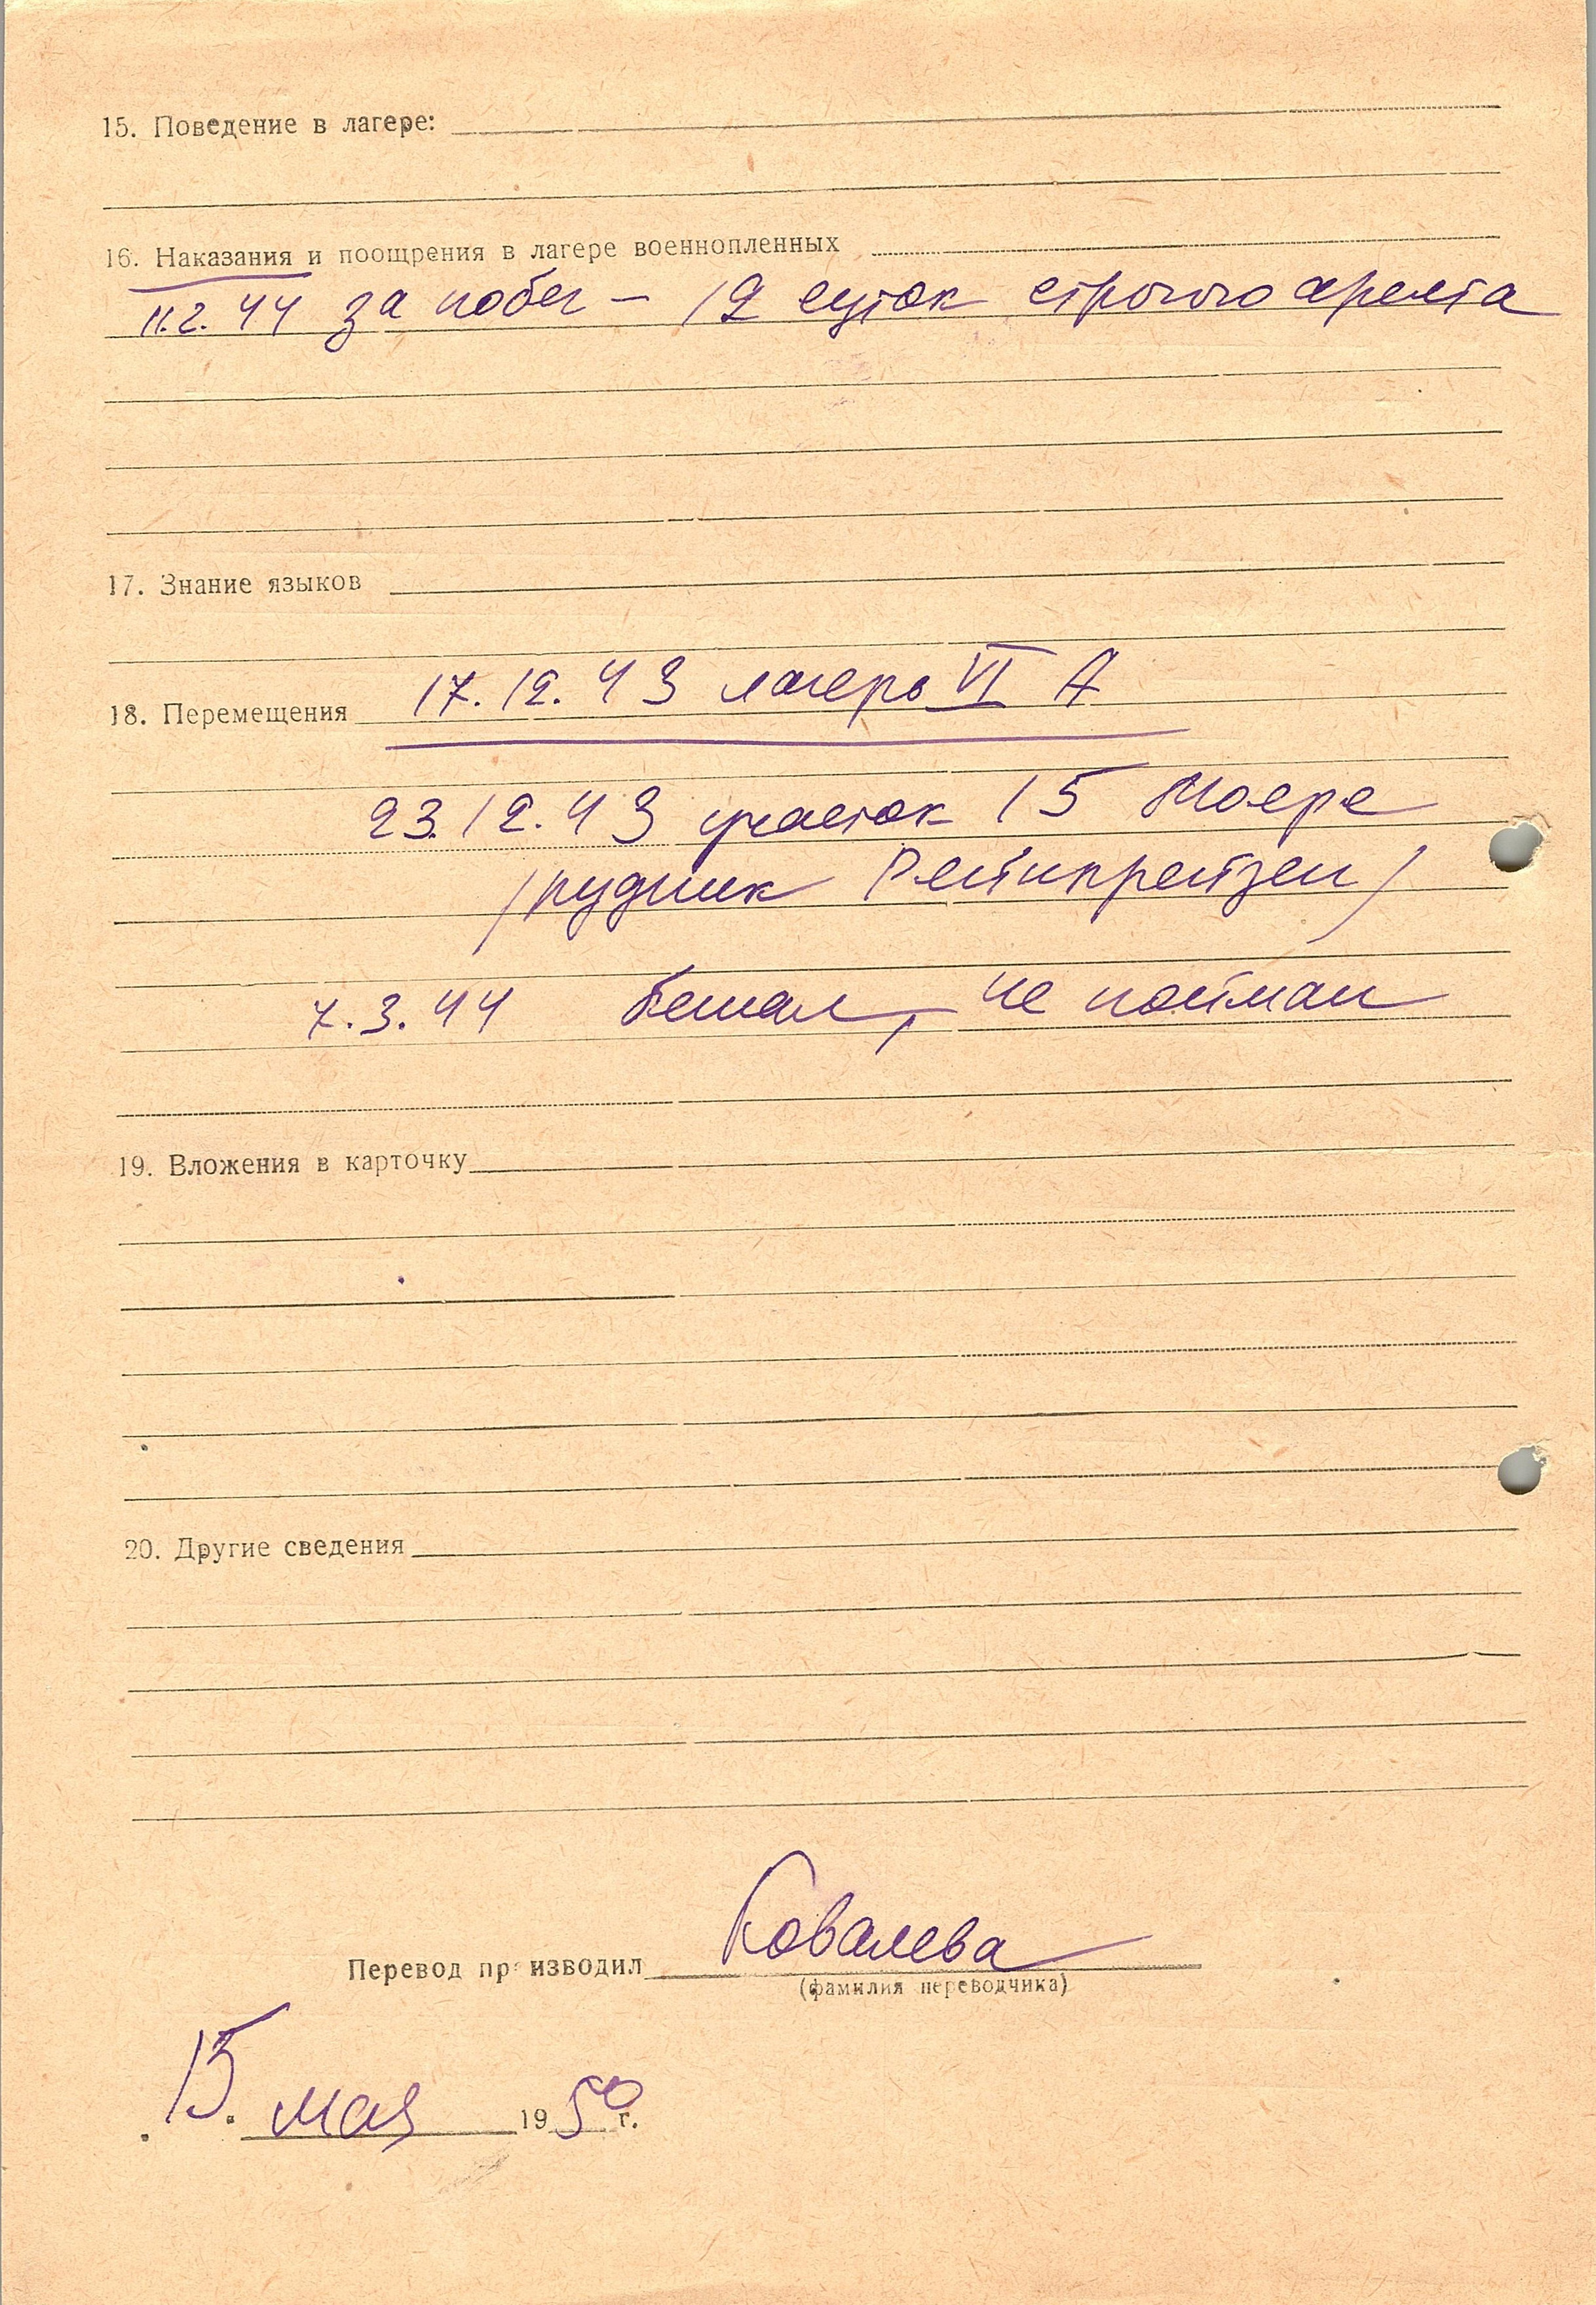 15. Поведение в лагере:
16. Наказания и поощрения в лагере военнопленных
11.2.44 за побег – 12 суток строгого ареста
17. Знание языков
18. Перемещения 17.12.43 лагерь VI А
23.12.43 участок 15 Моерс
/рудник Рейнпрейзен/
7.3.44 бежал, не пойман
19. Вложения в карточку
20. Другие сведения
Перевод пр изводил Ковалева
(фамилия переводчика)
15. мая 1950 г.